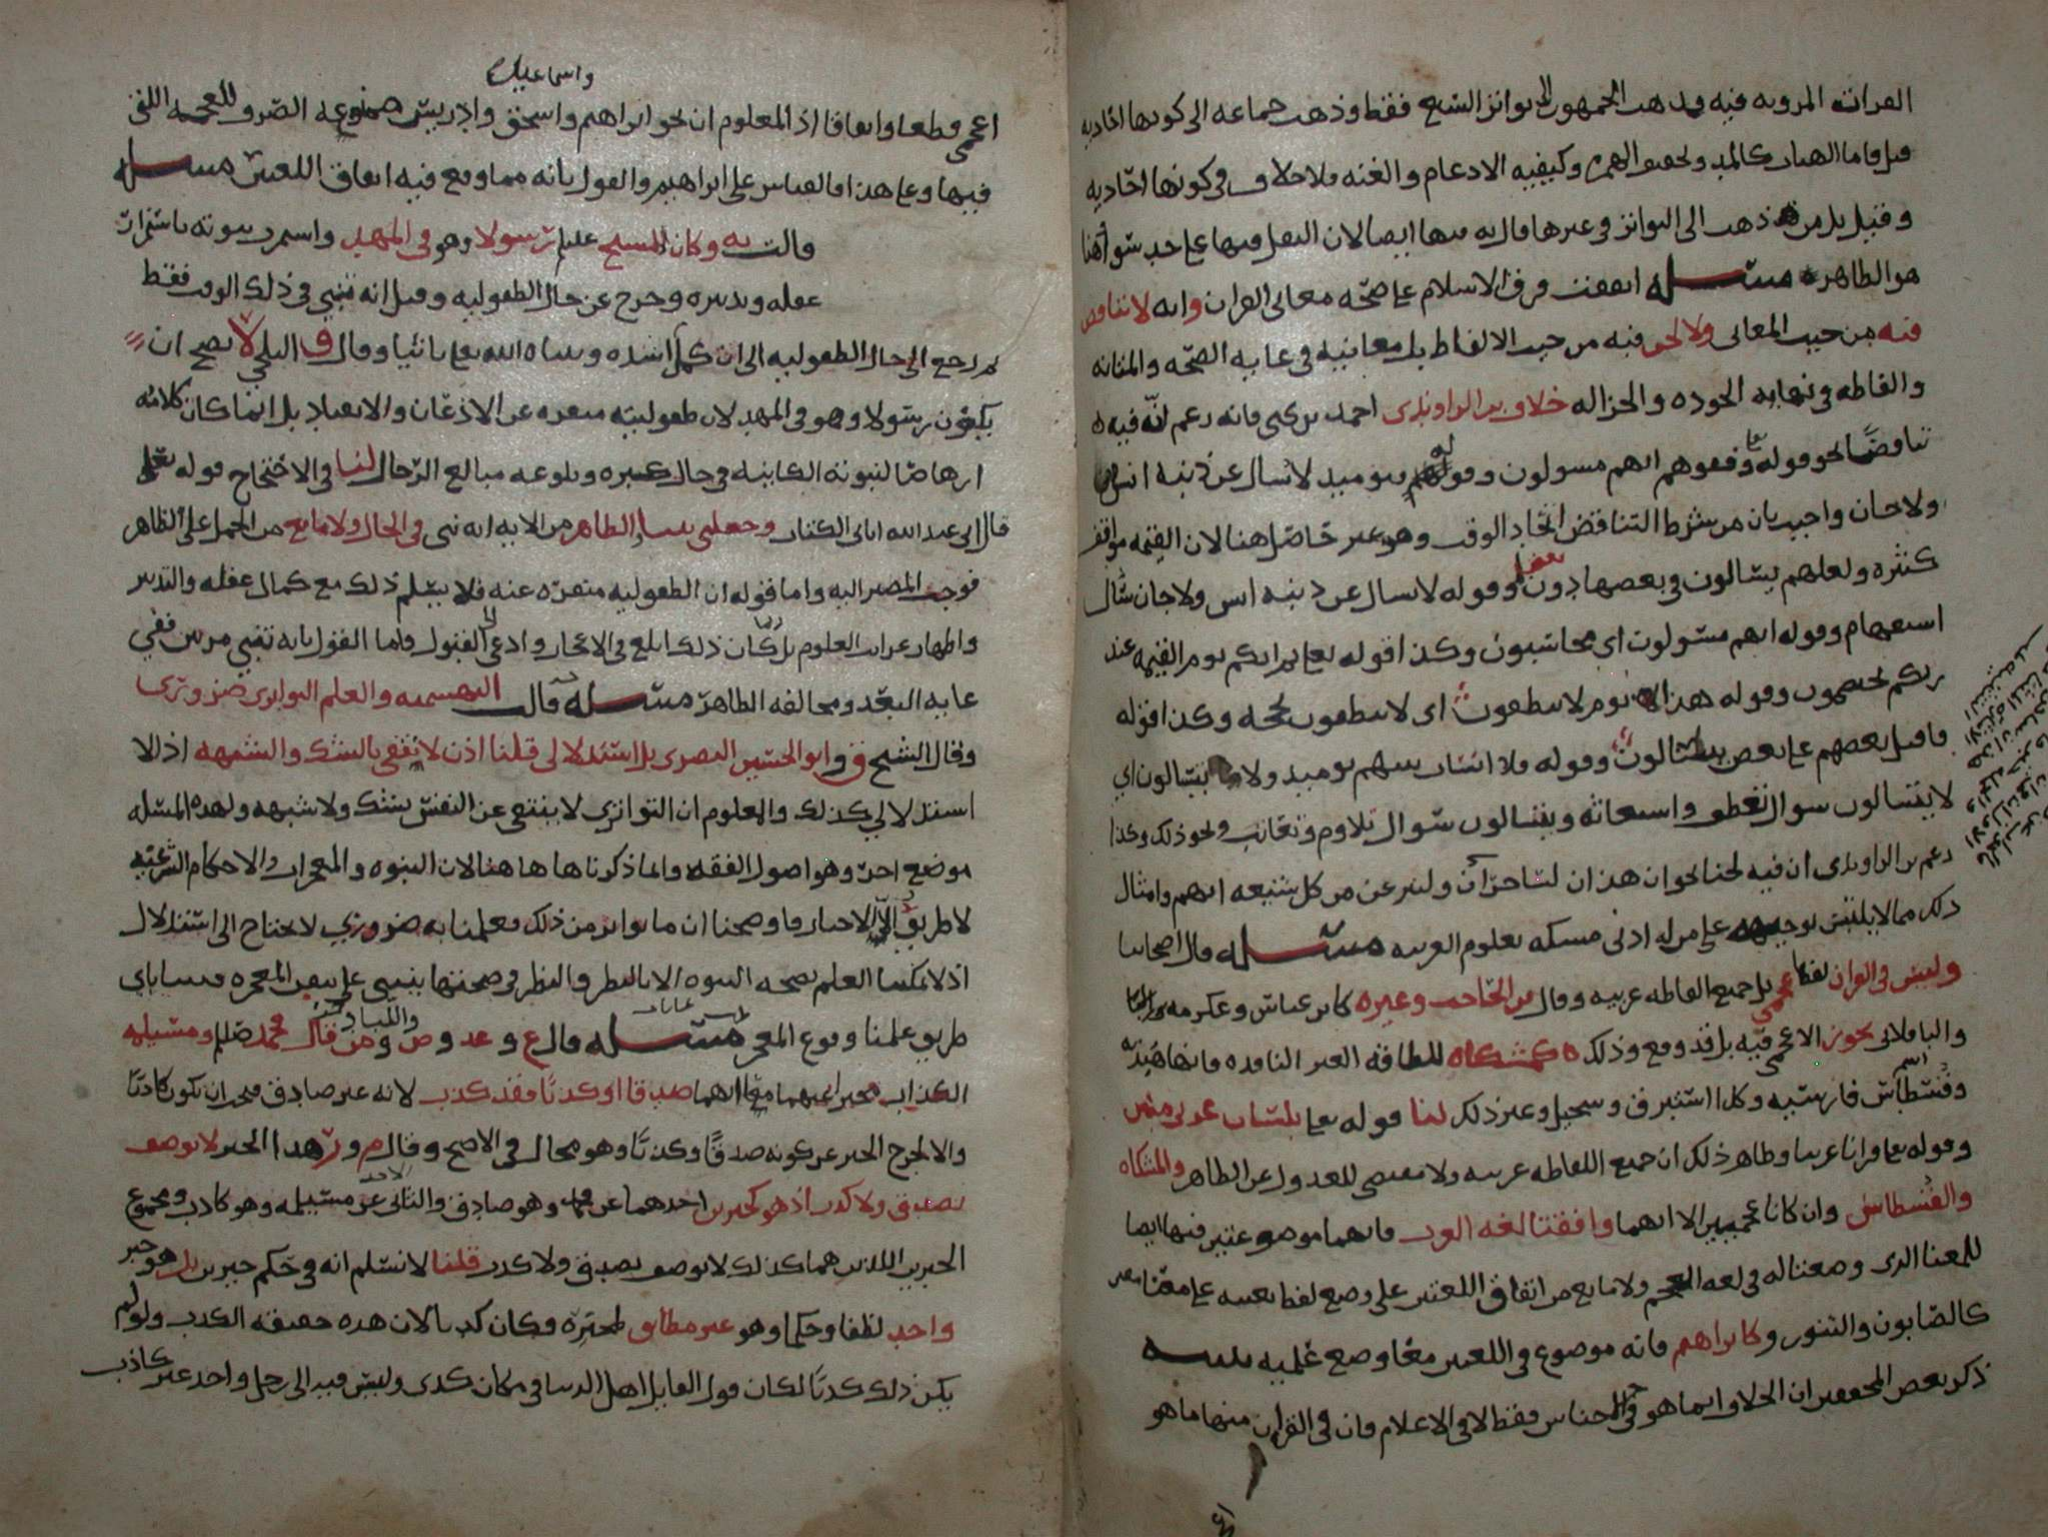 القرات المرويه فيه فذهب الجمهور الى تواتر السبع فقط وذهب جماعه الى كونها احاديه
قيل واما الهيات كالمد وتحقيق الهمزه وكيفيه الادغام والغنه فلا خلاف في كونها احاديه
وقيل بل من ذهب الى التواتر في غيرها قال به فيها ايضا لان النقل فيها على حد سوا وهذا
هو الظاهر مسئله اتفقت فرق الاسلام على صحه معاني القران وانه لا تناقض
فيه من حيث المعاني ولا لحن فيه من حيث الالفاظ بل معانيه في غايه الصحه والمتانه
والفاظه في نهايه الجوده والجزاله خلاف بن الراوندي احمد بن يحيى فانه زعم انه فيه
تناقضا نحو قوله تعا وقفوهم انهم مسولون وقوله فيوميذ لا يسال عن ذنبه انس
ولا جان واجيب بان من شرط التناقض اتحاد الوقت وهو غير حاصل هنا لان القيمه مواقف
كثيره ولعلهم يسالون في بعضها دون بعض وقوله لا يسال عن ذنبه انس ولا جان سال
استفهام وقوله انهم مسولون اي محاسبون وكذا قوله تعا ثم انكم يوم القيمه عند
ربكم تختصمون وقوله هذا يوم لا ينطقون اي لا ينطقون بحجه وكذا قوله
فاقبل بعضهم على بعض يتسالون وقوله فلا انساب بينهم يوميذ ولا يتسالون اي
لا يتسالون سوال تعطف واستغاثه ويتسالون سوال تلاوم وتعاتب ونحو ذلك وكذا
زعم بن الراوندي ان فيه لحنا نحو ان هذان لساحران ولننزعن من كل شيعه ايهم وامثال
ذلك مما لا يلتبس توجيهه على من له ادنى مسكه بعلوم العربيه مسئله قال اصحابنا
وليس في القران لفظ عجمي بل جميع الفاظه عربيه وقال بن الحاجب وغيره كابن عباس وعكرمه
والباقلاني يجوز الاعجمي فيه بل قد وقع وذلك كمشكاه للطاقه الغير النافذه فانها هنديه
وقسطاس فارسيه وكذا استبرق وسجيل وغير ذلك لنا قوله تعا بلسان عربي مبين
وقوله تعا قرانا عربيا وظاهر ذلك ان جميع الفاظه عربيه ولا مقتضي للعدول عن الظاهر والمشكاه
والقسطاس وان كانا عجميين الا انهما وافقتا لغه العرب فانهما موضوعتين فيها ايضا
للمعنا الذي وضعتا له في لغه العجم ولا مانع من اتفاق اللغتين على وضع لفظ بعينه على معنا
كالصابون والتنور وكابراهم فانه موضوع في اللغتين معا وضع علميه تنبيه
ذكر بعض المحققين ان الخلاف انما هو في الاجناس فقط لا في الاعلام فان في القران منها ما هو
واسماعيل
اعجمي قطعا واتفاقا اذ المعلوم ان نحو ابراهيم واسحق وادريس ممنوعه الصرف للعجمه التي
فيها وعلى هذا فالقياس على ابراهيم والقول بانه مما وقع فيه اتفاق اللغتين مسئله
قالت به وكان المسيح عليلم رسولا وهو في المهد واستمرت نبوته باستمرار
عقله وتدبيره وخرج عن حال الطفوليه وقيل انه نبي في ذلك الوقت فقط
ثم رجع الى حال الطفوليه الى ان كمل اشده ونباه الله تعا ثانيا وقال ق البلخي لا يصح ان
يكون رسولا وهو في المهد لان طفوليته منفره عن الاذعان والانقياد بل انما كان كلامه
ارهاصا لنبوته الكاينه في حال كبره وبلوغه مبالغ الرجال لنا في الاحتجاج قوله تعلى
قال اني عبد الله اتاني الكتاب وجعلني نبيا الظاهر من الايه انه نبي في الحال ولا مانع من الحمل على الظاهر
فوجب المصير اليه واما قوله ان الطفوليه منفره عنه فلا يسلم ذلك مع كمال عقله والتدبر
واظهار غرايب العلوم بل ربما كان ذلك ابلغ في الاعجاز وادعى الى القبول واما القول بانه تنبي مرتين ففي
غايه البعد ومخالفه الظاهر مسئله قالت البهشميه والعلم التواتري ضروري
وقال الشيخ ق وابو الحسين البصري بل استدلالي قلنا اذن لانتفى بالشك والشبهه اذ لا
استدلالي كذلك والمعلوم ان التواتري لا ينتفي عن النفس بشك ولا شبهه ولهذه المسئله
موضع اخر وهو اصول الفقه وانما ذكرناها هاهنا لان النبوه والمعجزات والاحكام الشرعيه
لا طريق الا الاخبار فاوضحنا ان ما تواتر من ذلك فعلمنا به ضروري لا يحتاج الى استدلال
اذ لا يمكننا العلم بصحه النبوه الا بالنظر والنظر في صحتها ينبني على تيقن المعجزه فبينا باي
طريق علمنا وقوع المعجز مسئله قال ع وعد وص ومن قال محمد صللم ومسيلمه
الكذاب مخبر عنهما معا انهما صدقا او كذبا فقد كذب لانه غير صادق فيجب ان يكون كاذبا
والا لخرج الخبر عن كونه صدقا وكذبا وهو محال في الاصح وقال م ور هذا الخبر لا يوصف
بصدق ولا كذب اذ هو كخبرين احدهما عن محمد وهو صادق والثاني عن مسيلمه وهو كاذب ومجموع
الخبرين اللذين هما كذلك لا يوصف بصدق ولا كذب قلنا لا نسلم انه في حكم خبرين بل هو خبر
واحد لفظا وحكما وهو غير مطابق لمخبره فكان كذبا لان هذه حقيقه الكذب ولو لم
يكن ذلك كذبا لكان قول القايل اهل الدنيا في مكان كذى وليس فيه الا رجل واحد غير كاذب